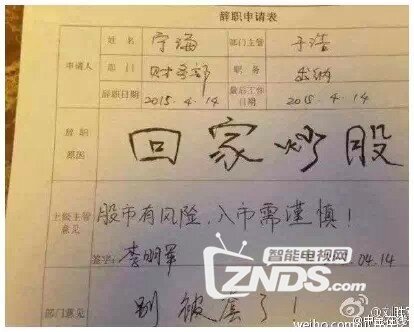 辞职申请表
申请人 姓名 宁海 部门主管 于浩
部门 财务部 职务 出纳
辞职日期 2015.4.14 最后工作日期 2015.4.14
辞职原因 回家炒股
上级主管意见 股市有风险,入市需谨慎!
签字: 李明军 .04.14
部门意见 别被套了!
智能电视网
ZNDS.com